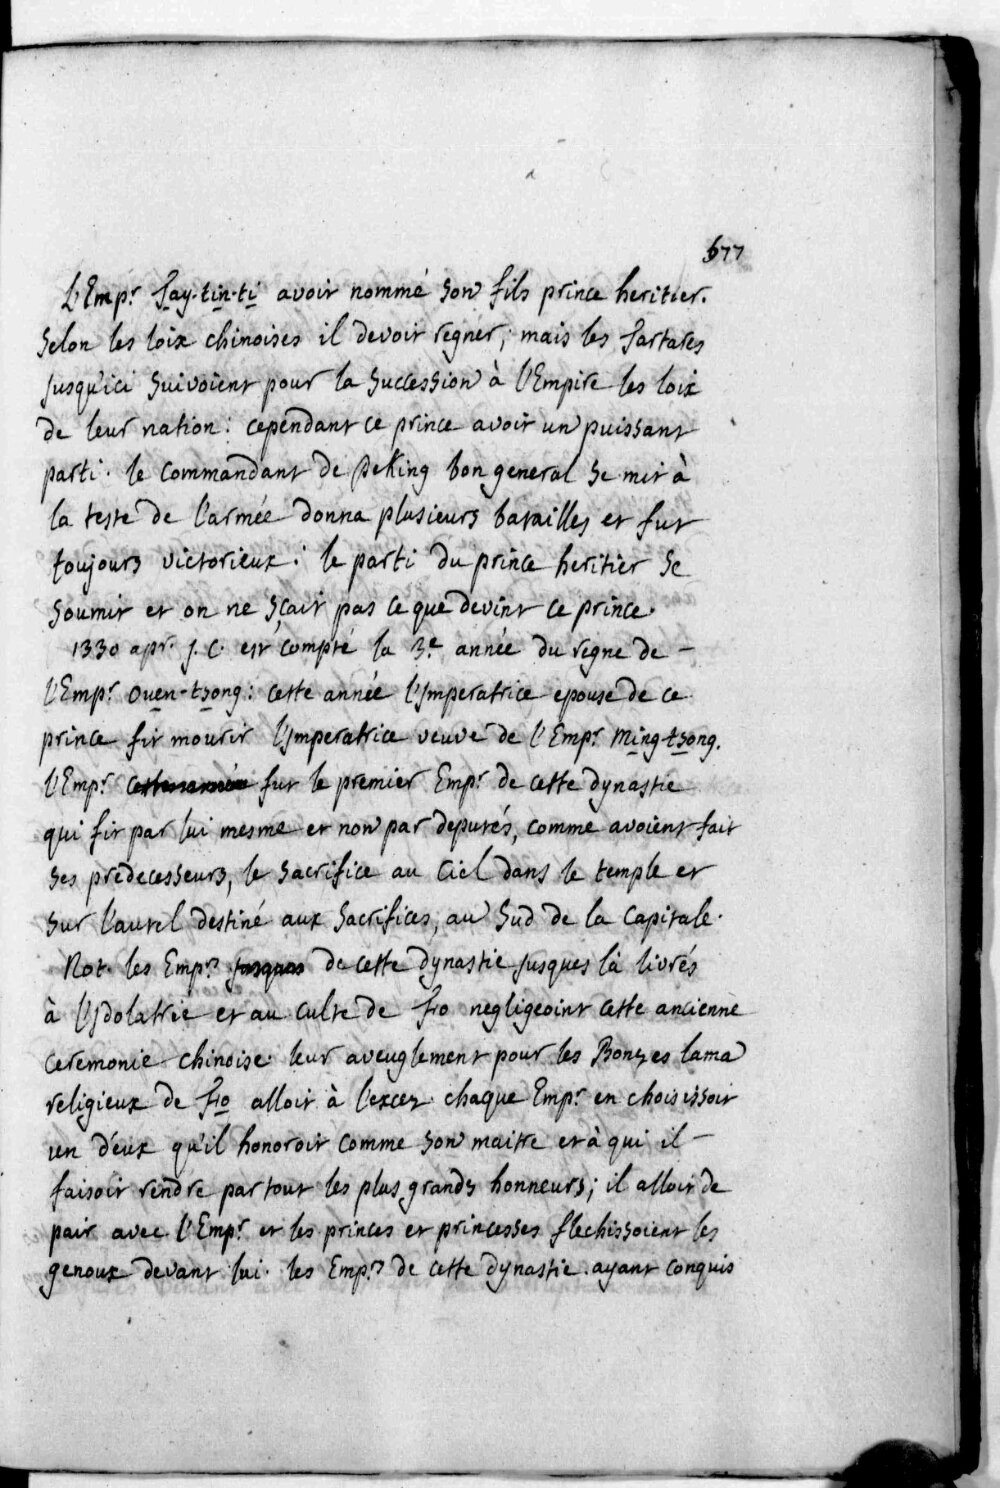 577
L'Emp.r Tay-tin-ti avoit nommé son fils prince heritier.
Selon les loix chinoises il devoit regner; mais les Tartares
jusqu'ici suivoient pour la succession à l'Empire les loix
de leur nation: cependant ce prince avoit un puissant
parti. le commandant de Peking bon general se mit à
la teste de l'armée donna plusieurs batailles et fut
toujours victorieux: le parti du prince heritier se
soumit et on ne sçait pas ce que devint ce prince.
1330 apr. J. C. est compté la 3.e année du regne de –
l'Emp.r Ouen-tsong: cette année l'Imperatrice epouse de ce
prince fit mourir l'Imperatrice veuve de l'Emp.r Ming-tsong.
l'Emp.r cette année fut le premier Emp.r de cette dynastie
qui fit par lui mesme et non par deputés, comme avoient fait
ses predecesseurs, le sacrifice au Ciel dans le temple et
sur l'autel destiné aux sacrifices, au sud de la Capitale.
Not. les Emp.rs jusques de cette dynastie jusques là livrés
à l'Idolatrie et au culte de Fo negligeoint cette ancienne
ceremonie chinoise. leur aveuglement pour les Bonzes lama
religieux de Fo alloit à l'excez. chaque Emp.r en choisissoit
un d'eux qu'il honoroit comme son maitre et à qui il –
faisoit rendre partout les plus grands honneurs; il alloit de
pair avec l'Emp.r et les princes et princesses flechissoient les
genoux devant lui. les Emp.rs de cette dynastie ayant conquis